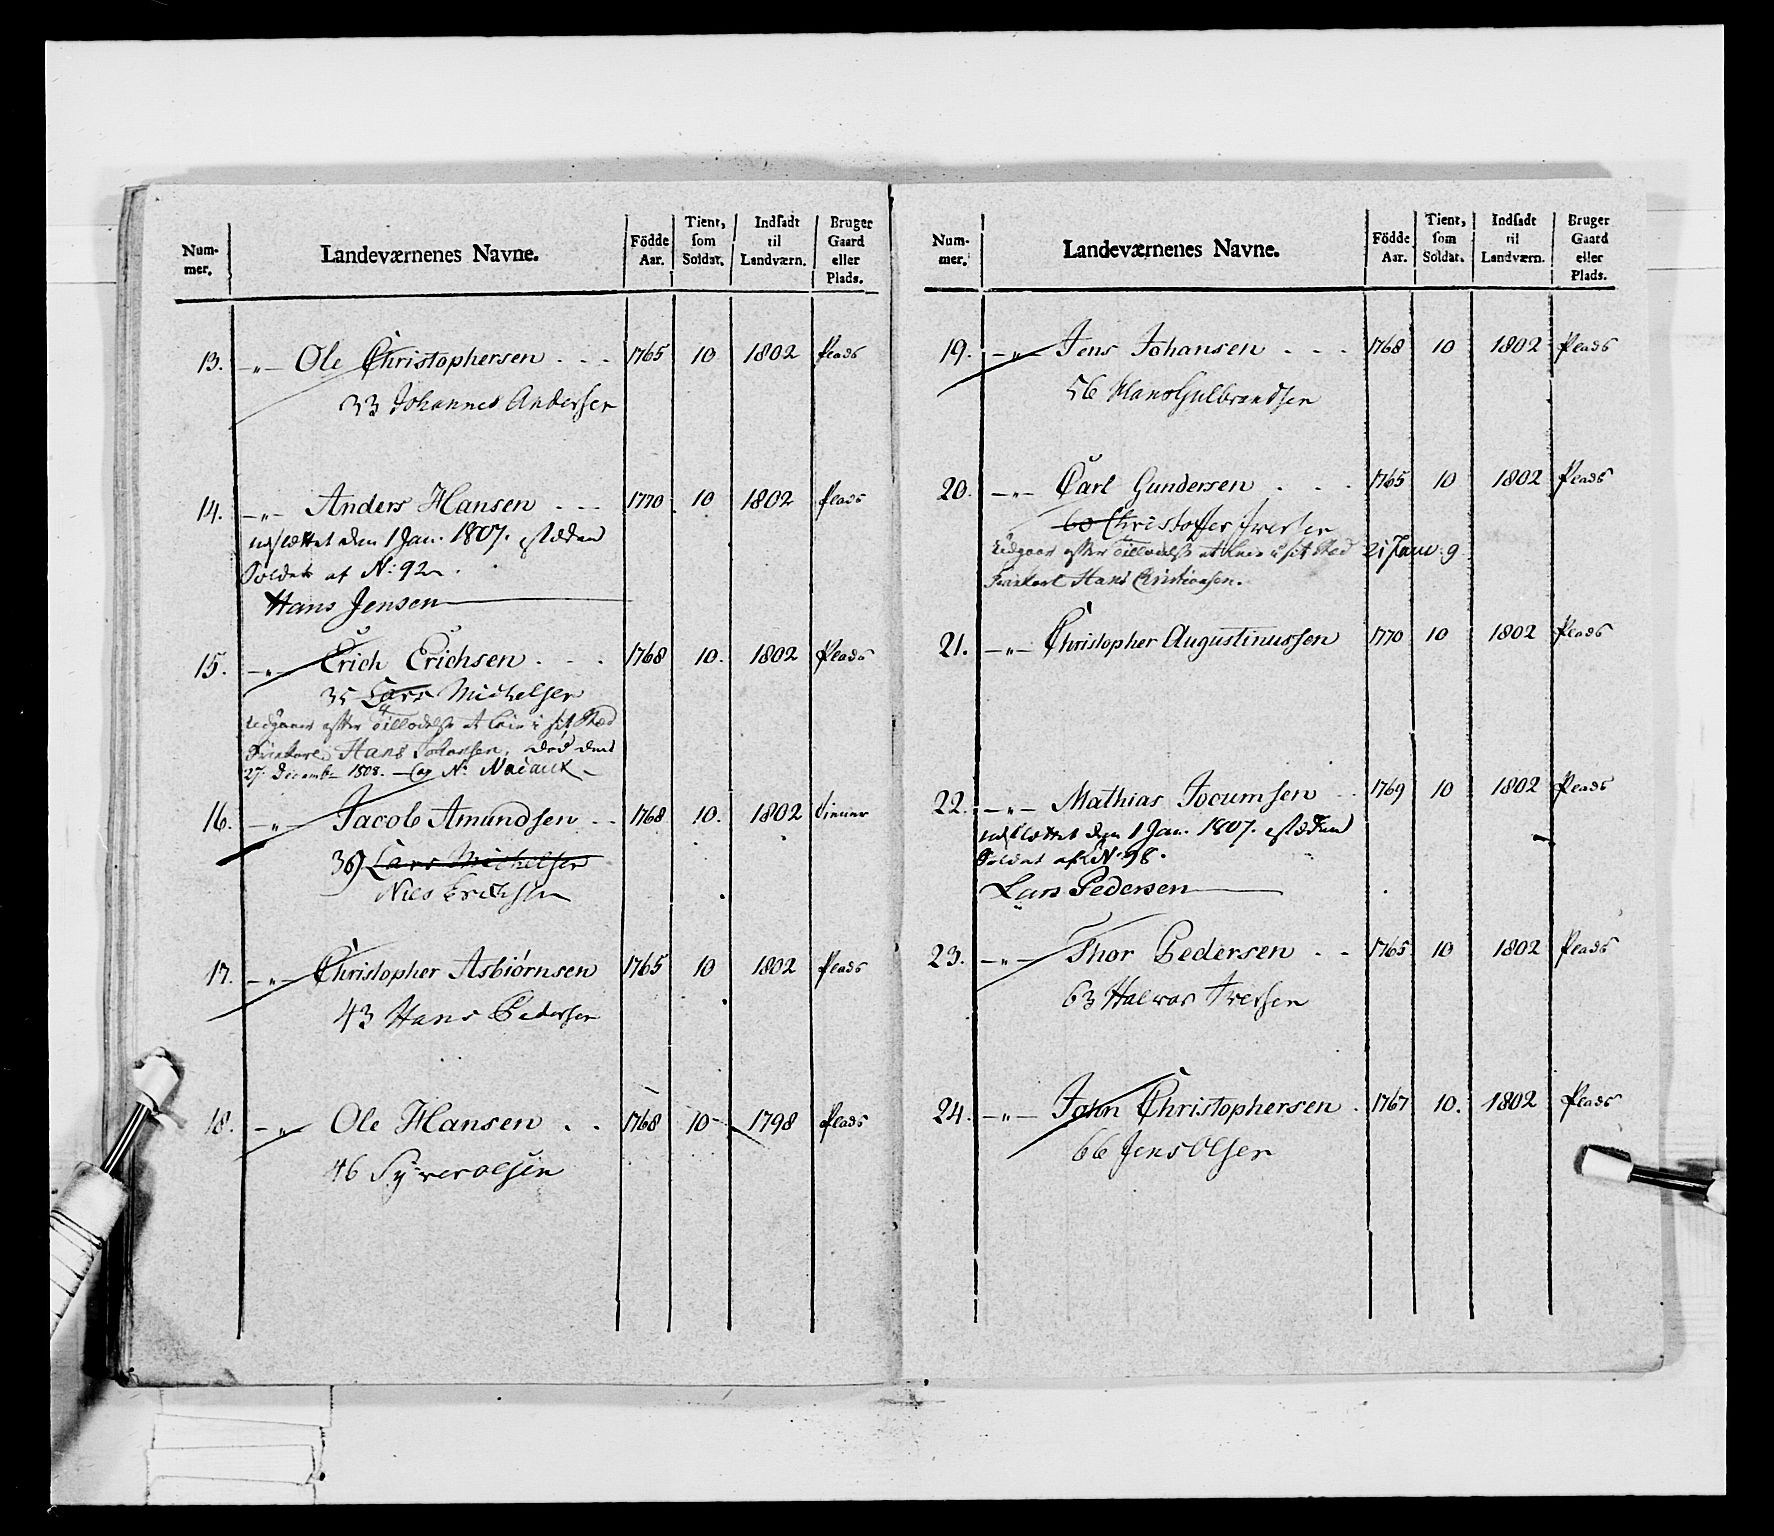 Num-
mer.
Landeværnenes Navne.
Födde
Aar.
Tient,
som
Soldat.
Indsadt
til
Landværn.
Bruger
Gaard
eller
Plads.
13. -„- Ole Christophersen . . . 1765 10 1802 Plads
33 Johannes Andersen
14. -„- Anders Hansen . . . 1770 10 1802 Plads
udslættet den 1 Jan. 1807. istæden
Soldat af N: 92
Hans Jensen
15. -„- Erich Erichsen . . . 1768 10. 1802 Plads
35 Lars Michelsen
Udgaaer efter Tilladelse at leie i sit Stæd
Hans død den
27 December 1808. Cap N:
16. -„- Jacob Amundsen . . 1768 10. 1802 tiener
39) Lars Michelsen
Niels Erichsen
17. -„- Christopher Asbiørnsen 1765 10 1802 Plads
43 Hans Pedersen
18. -„- Ole Hansen . . 1768 10 1798 Plads
46 Syver olsen
Num-
mer.
Landeværnenes Navne.
Födde
Aar.
Tient,
som
Soldat.
Indsadt
til
Landværn.
Bruger
Gaard
eller
Plads.
19. -„- Jens Johansen . . . 1768 10 1802 Plads
56 Hans Gulbrandsen
20. -„- Carl Gundersen . . . 1765 10 1802 Plads
60 Christoffer Iversen
Udgaar efter Tilladelse at leie i sit Sted 21 Janu: 9
Hans Christiansen.
21. -„- Christopher Augustinussen 1770 10 1802 Plads
22. -„- Mathias Jocumsen . . 1769 10 1802 Plads
udslættet den 1 Jan. 1807. istæden
Soldat af N: 98.
Lars Pedersen
23. -„- Thor Pedersen . . 1765 10 1802 Plads
63 Halvor Iversen
24. -„- John Christophersen . 1767 10. 1802 Plads
66 Jens Olsen